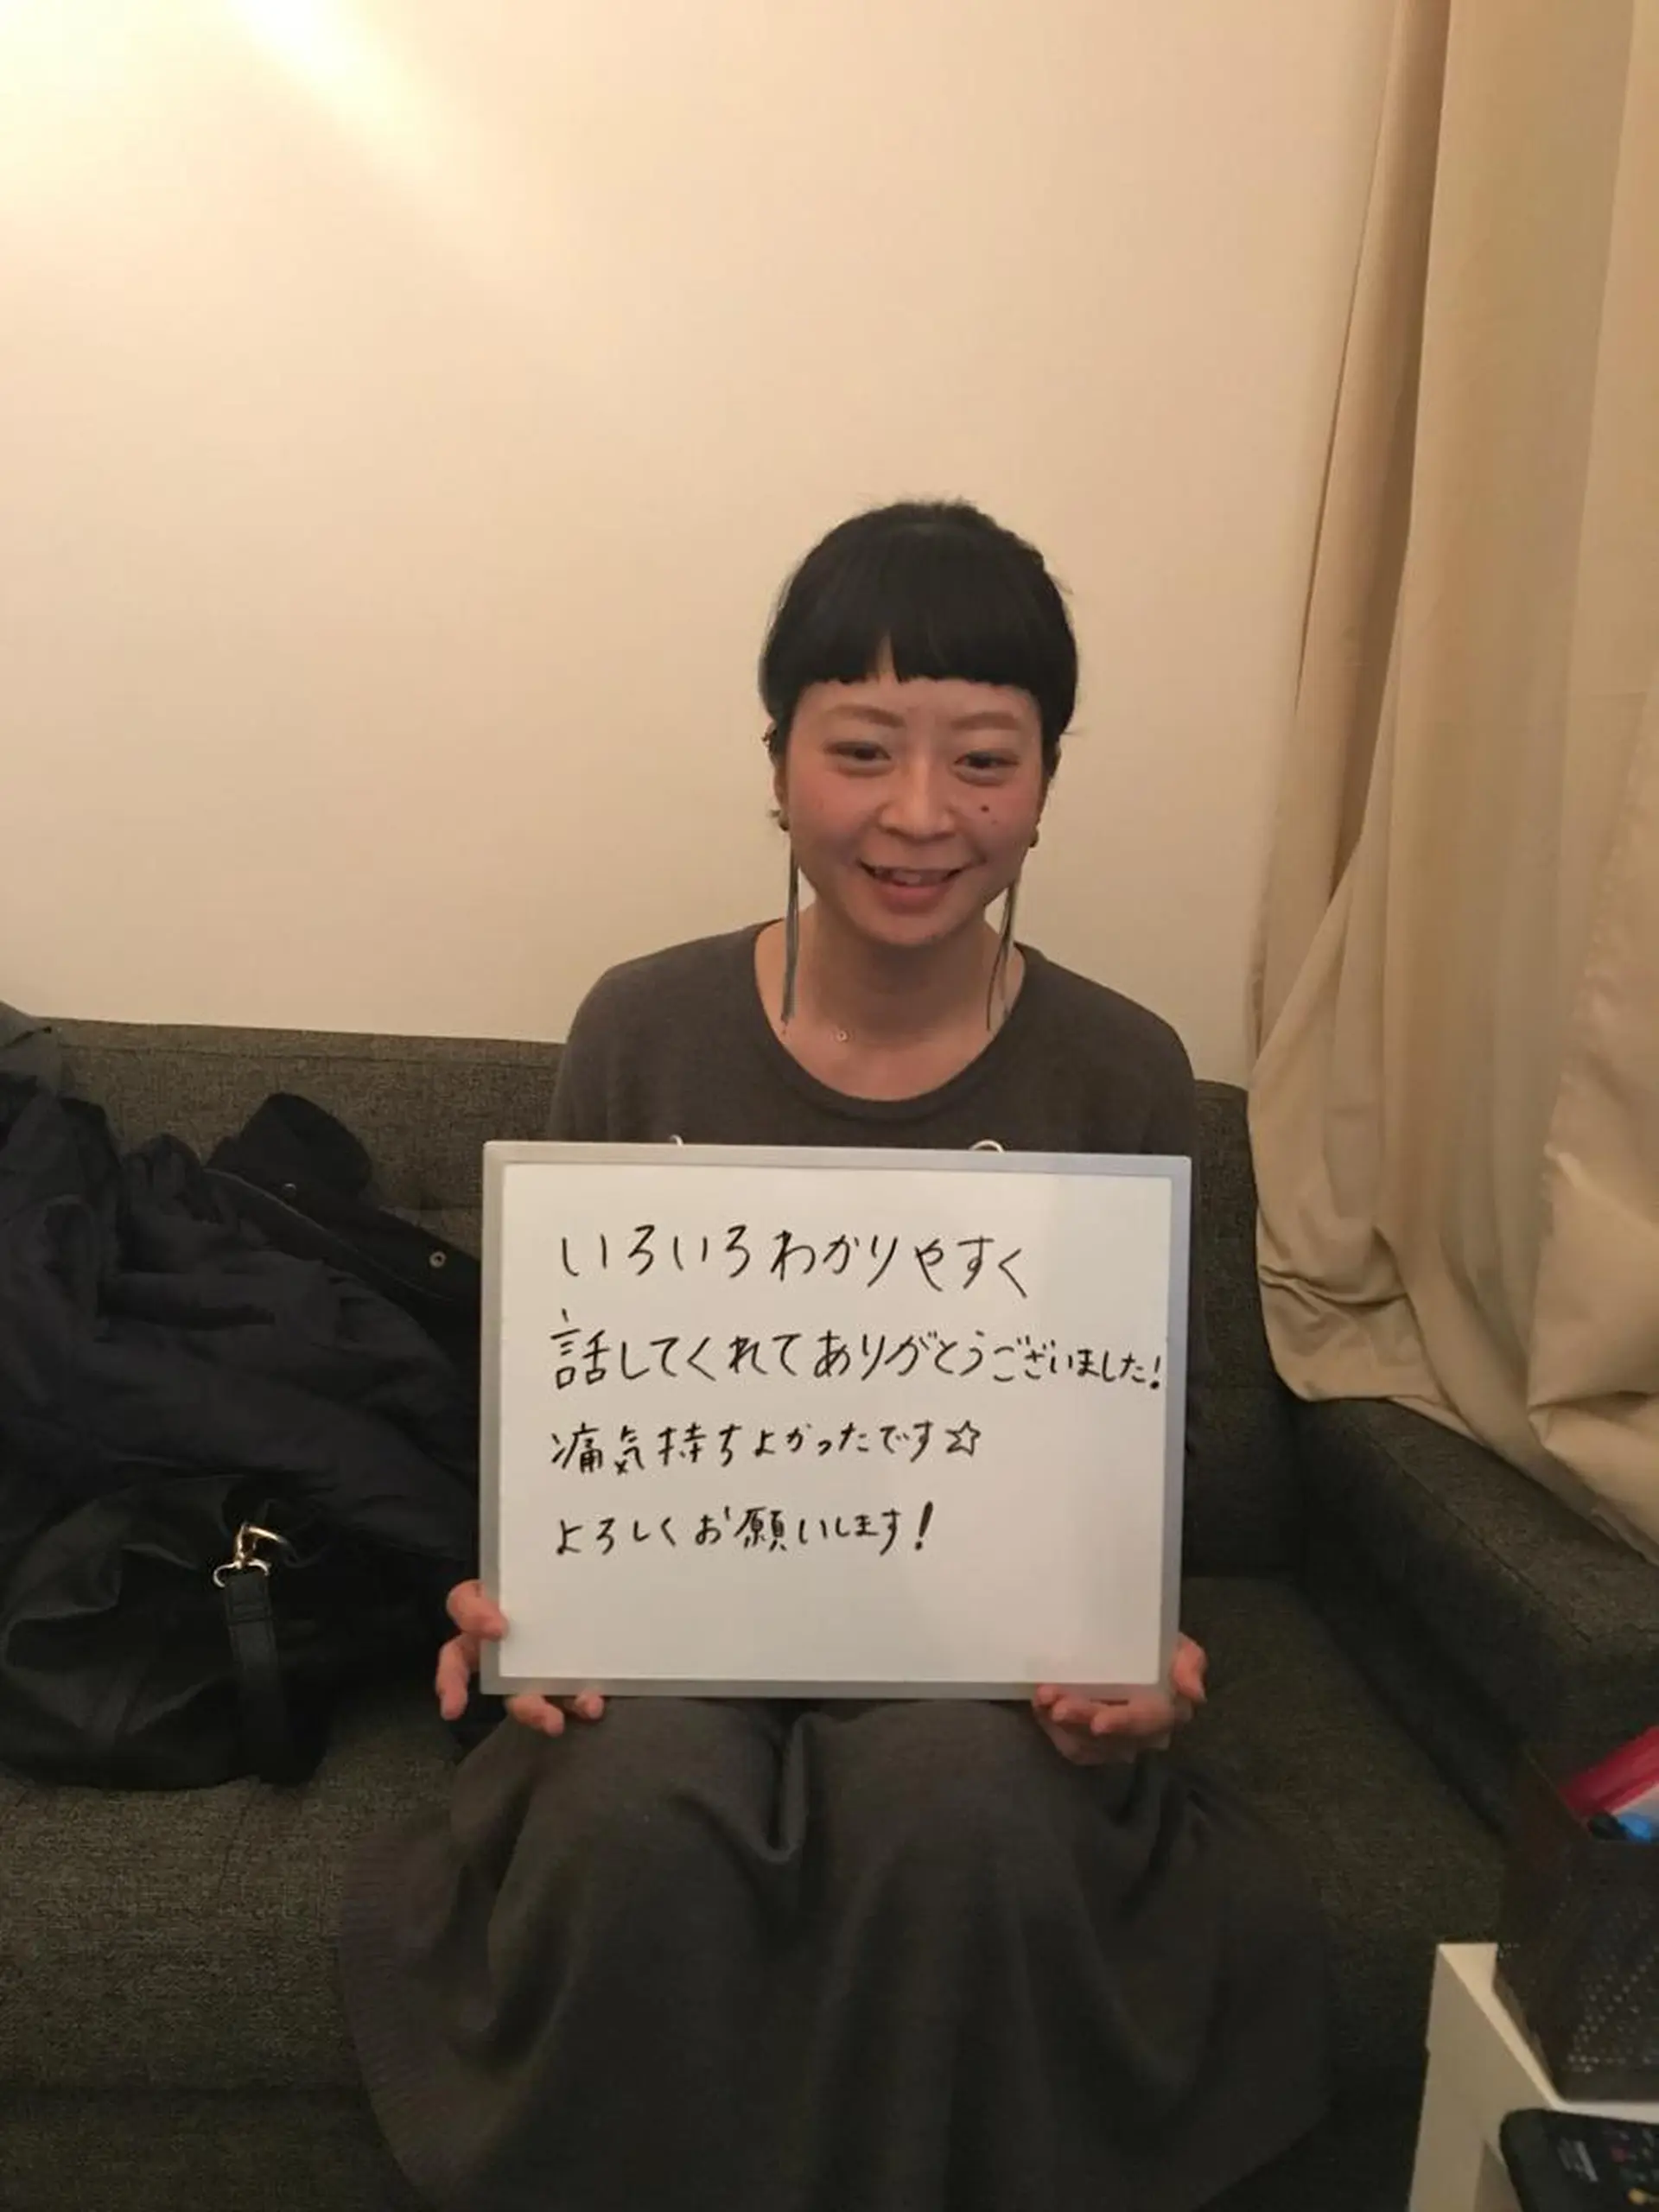 いろいろわかりやすく
話してくれてありがとうございました!
痛気持ちよかったです☆
よろしくお願いします!